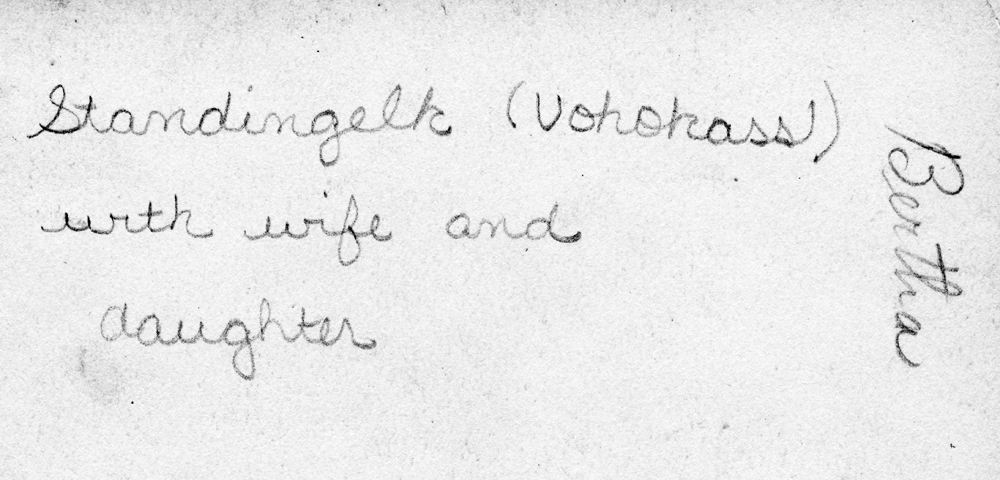 Standingelk (Vohokass)
with wife and
daughter
Bertha